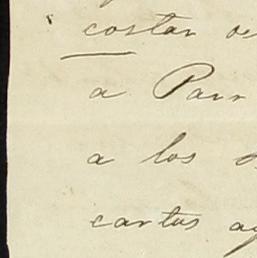 costar
a Parr
a los
cartas